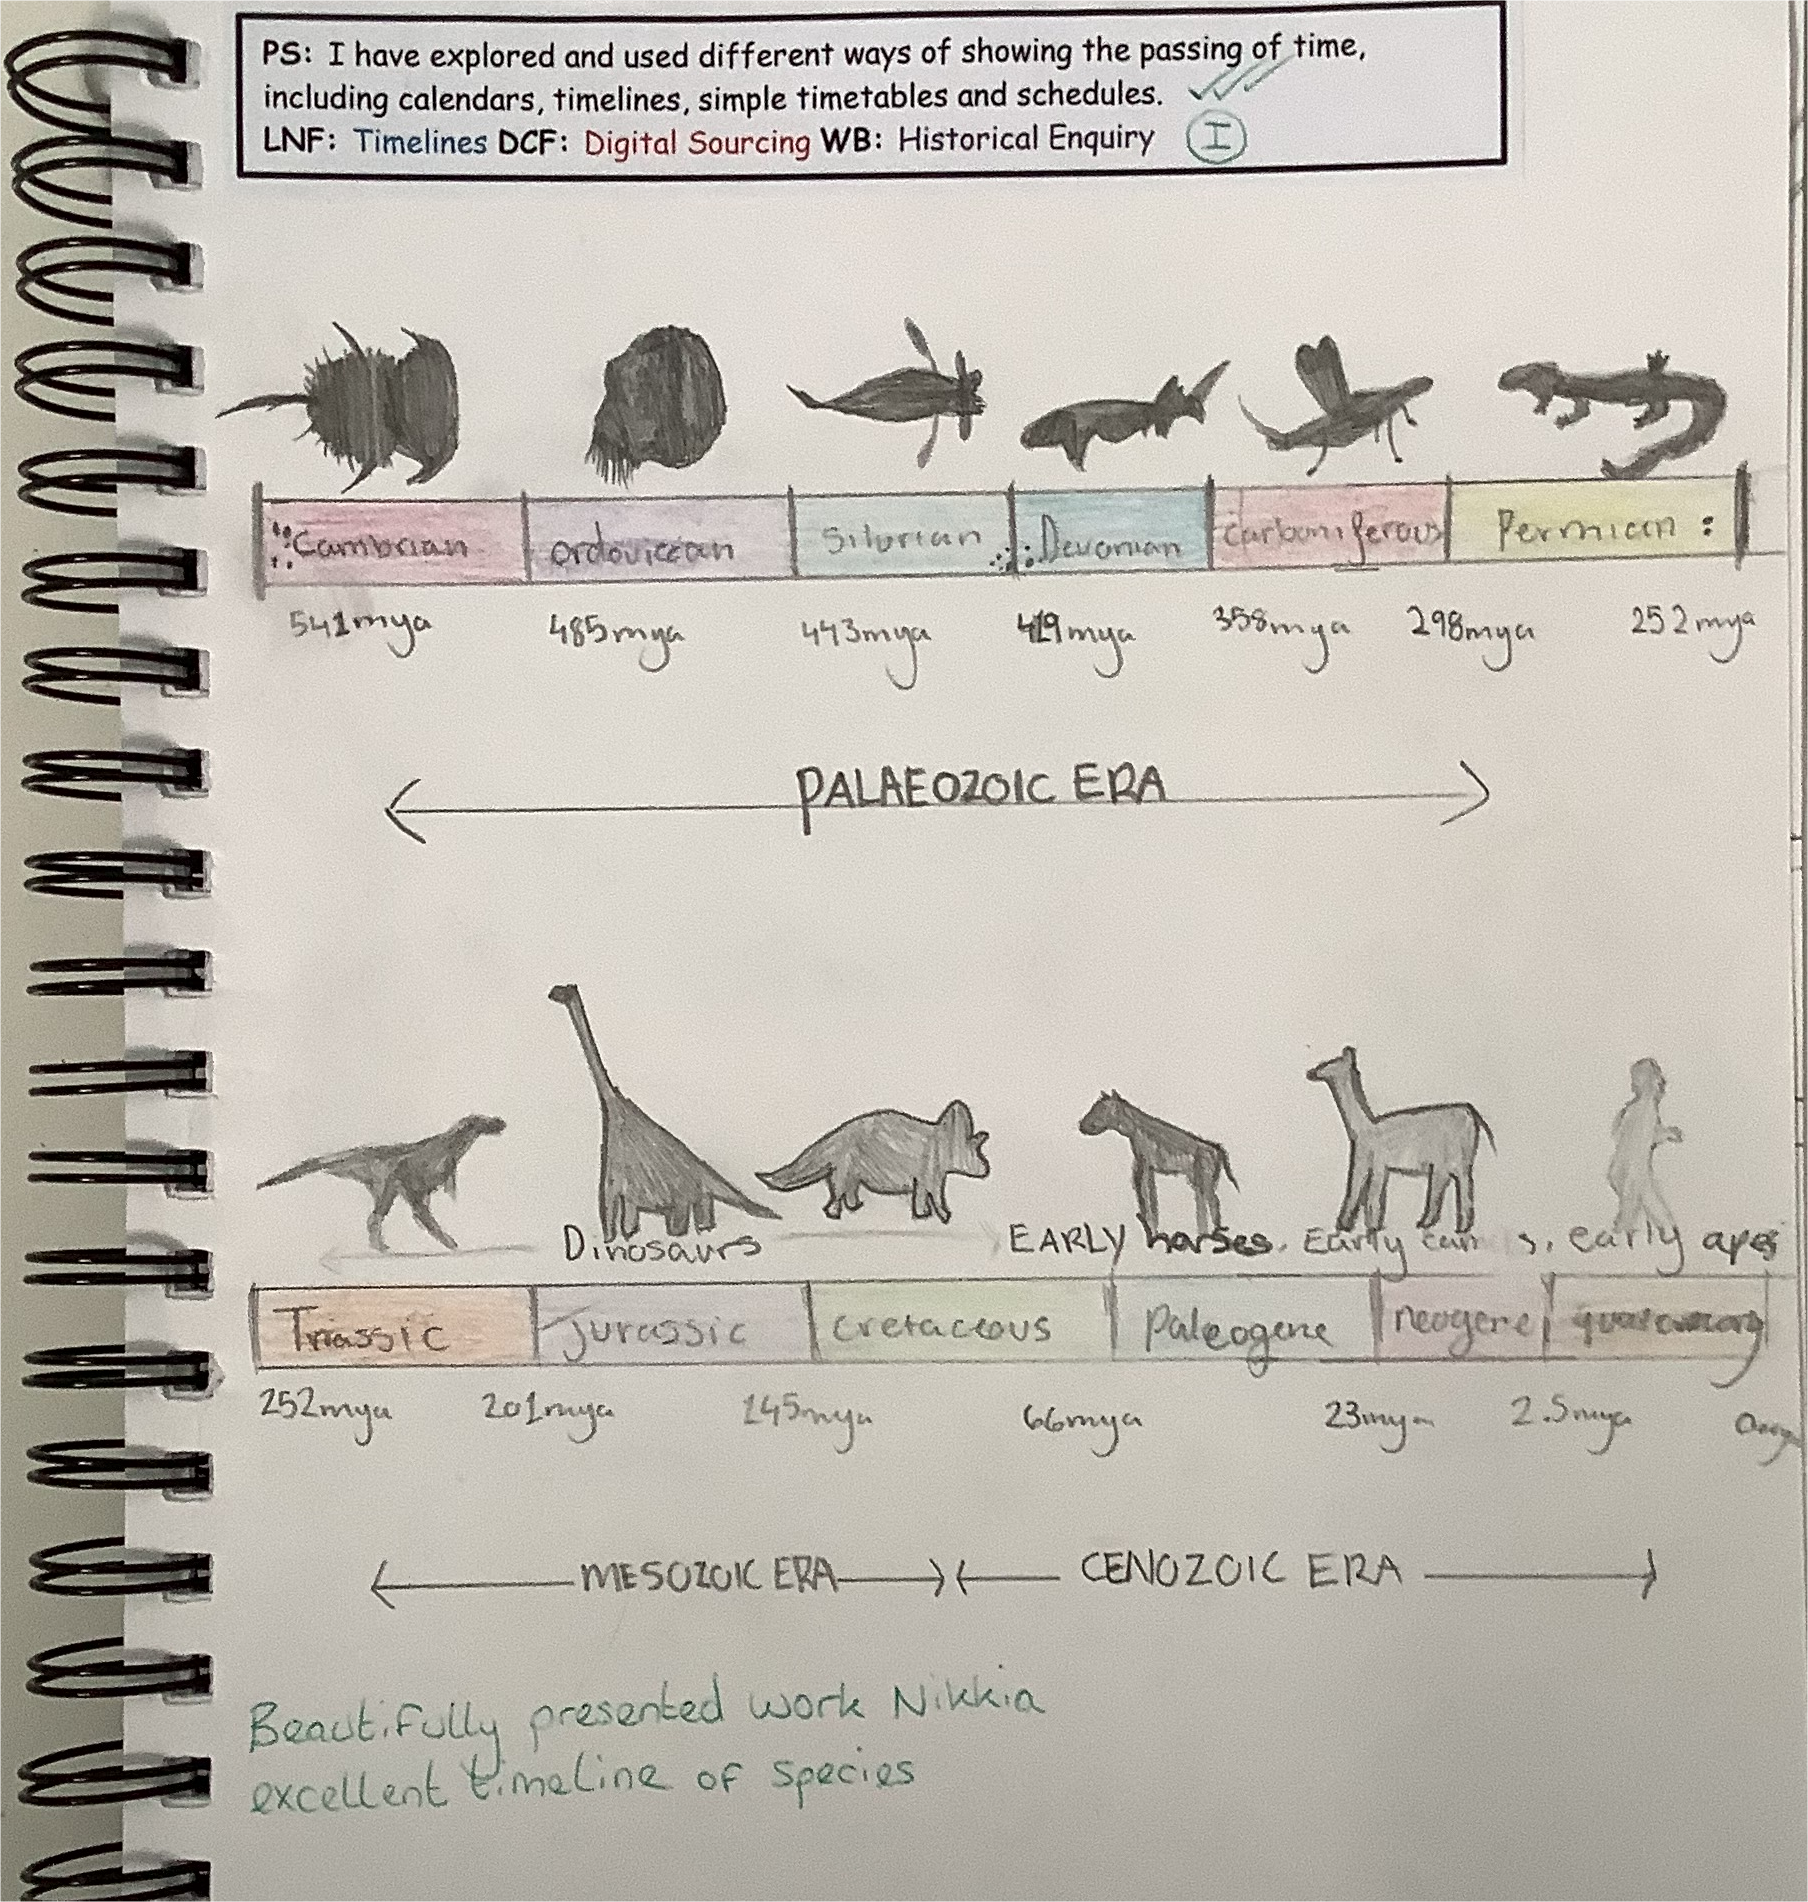 PS: I have explored and used different ways of showing the passing of time,
including calendars, timelines, simple timetables and schedules.
LNF: Timelines DCF: Digital Sourcing WB: Historical Enquiry I
Cambrian ordovician Silurian Devonian Carboniferous Permian
541mya 485mya 443mya 419mya 358mya 298mya 252mya
PALAEOZOIC ERA
Dinosaurs EARLY horses. Early early apes
Triassic Jurassic cretaceous Paleogene neogene
252mya 201mya 145mya 66mya 23mya 2.5mya
MESOZOIC ERA CENOZOIC ERA
Beautifully presented work Nikkia
excellent timeline of species